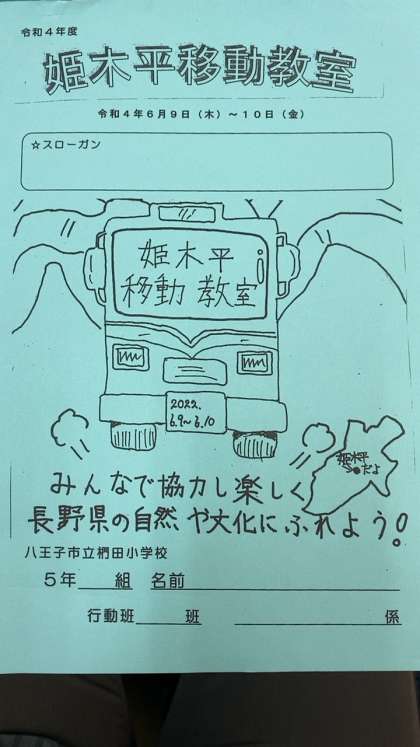 令和４年度
姫木平移動教室
令和４年６月９日（木）～１０日（金）
☆スローガン
姫木平
移動教室
2022.
6.9~6.10
姫木平
だよ
みんなで協力し楽しく
長野県の自然や文化にふれよう!
八王子市立椚田小学校
５年　組　名前
行動班　班　係